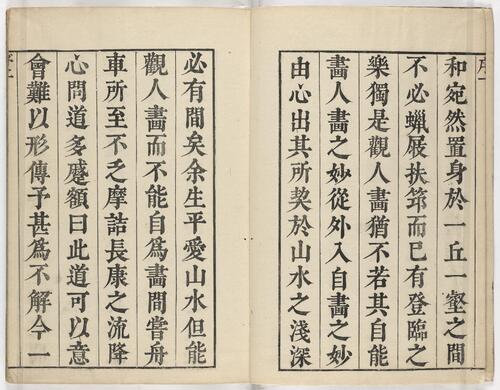 序一
和宛然置身於一丘一壑之間
不必蠟屐扶筇而已有登臨之
樂獨是觀人畵猶不若其自能
畵人畵之妙從外入自畵之妙
由心出其所契於山水之淺深
必有間矣余生平愛山水但能
觀人畵而不能自爲畵間嘗舟
車所至不乏摩詰長康之流降
心問道多蹙額曰此道可以意
會難以形傳予甚爲不解今一